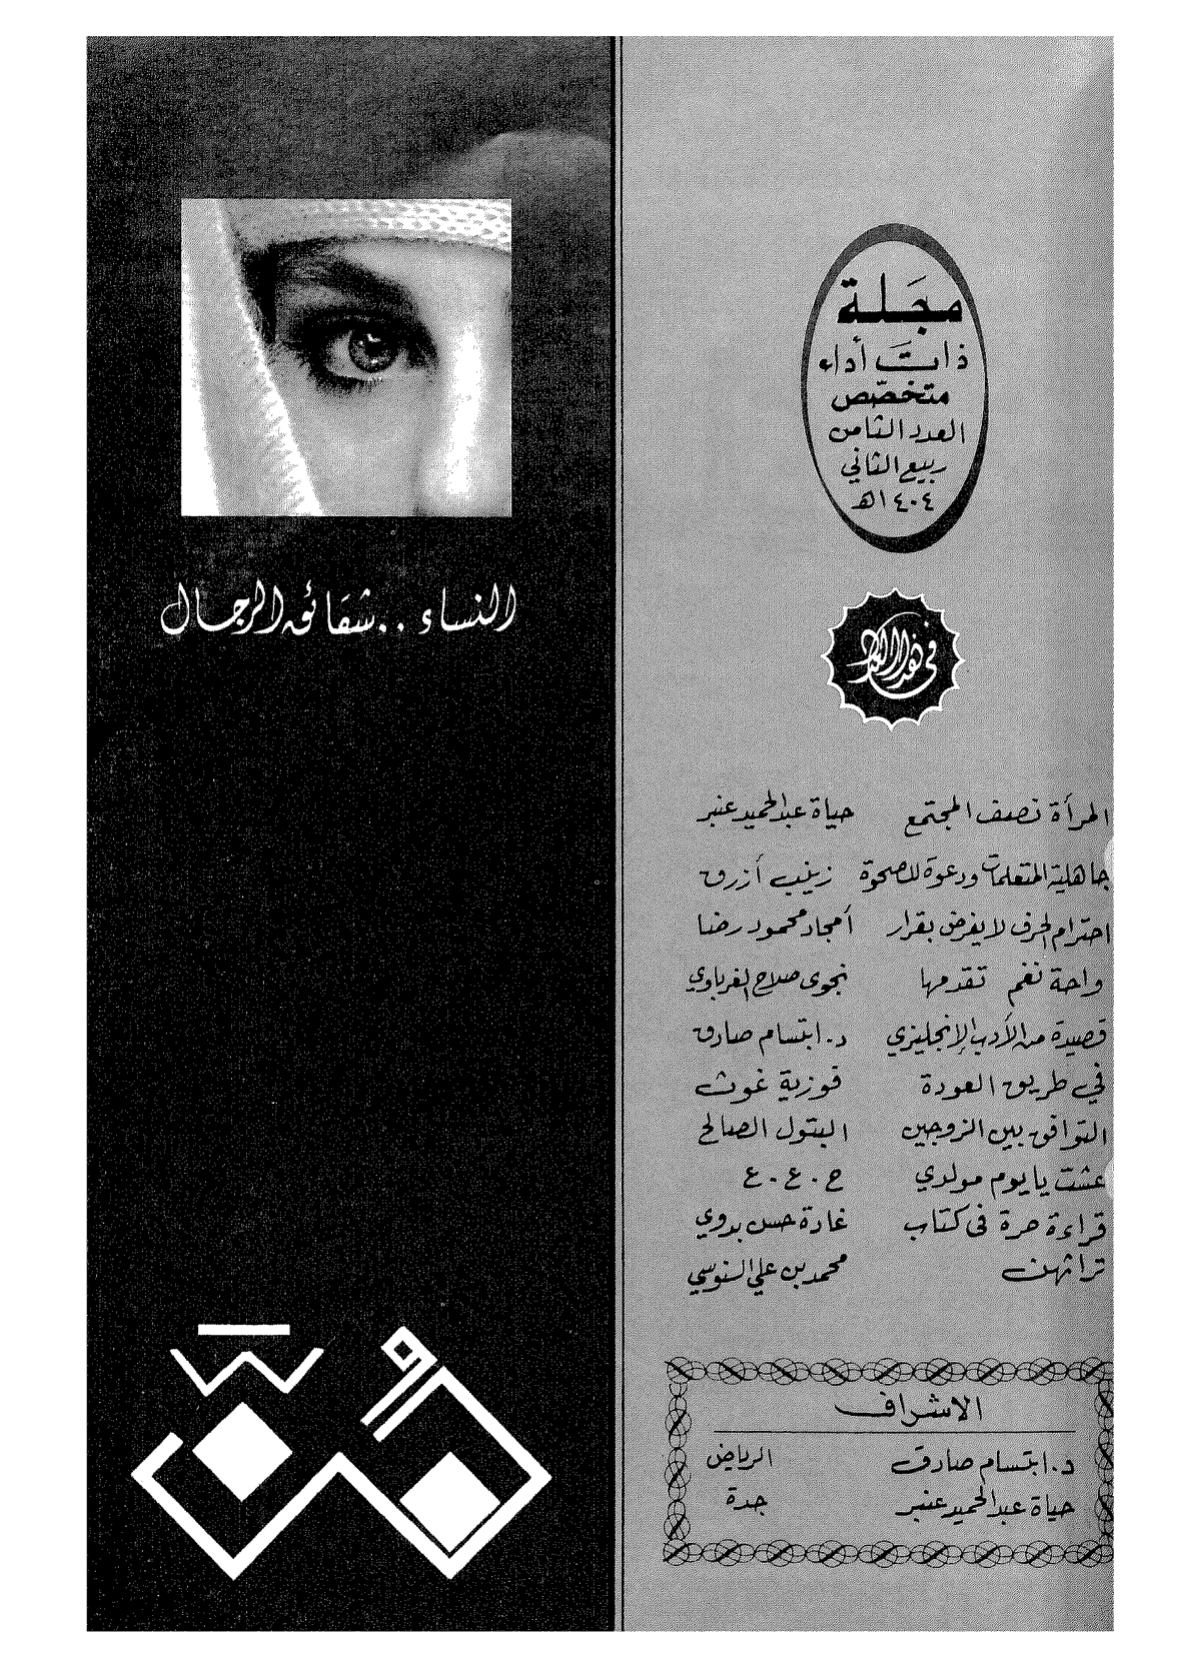 مجلة
ذات أداء
متخصص
العدد الثامن
ربيع الثاني
١٤٠٤هـ
في هذا العدد
المرأة نصف المجتمع حياة عبد الحميد عنبر
جاهلية المتعلمات ودعوة للصحوة زينب أزرق
احترام الحرف لا يفرض بقرار أمجاد محمود رضا
واحة نغم تقدمها نجوى صلاح الغرباوي
قصيدة من الأدب الإنجليزي د. ابتسام صادق
في طريق العودة فوزية غوث
التوافق بين الزوجين البتول الصالح
عشت يا يوم مولدي ح . ع . ع
قراءة حرة في كتاب غادة حسن بدوي
تراثهن محمد بن علي السنوسي
الاشراف
د. ابتسام صادق الرياض
حياة عبد الحميد عنبر جدة
النساء .. شقائق الرجال
هنّ